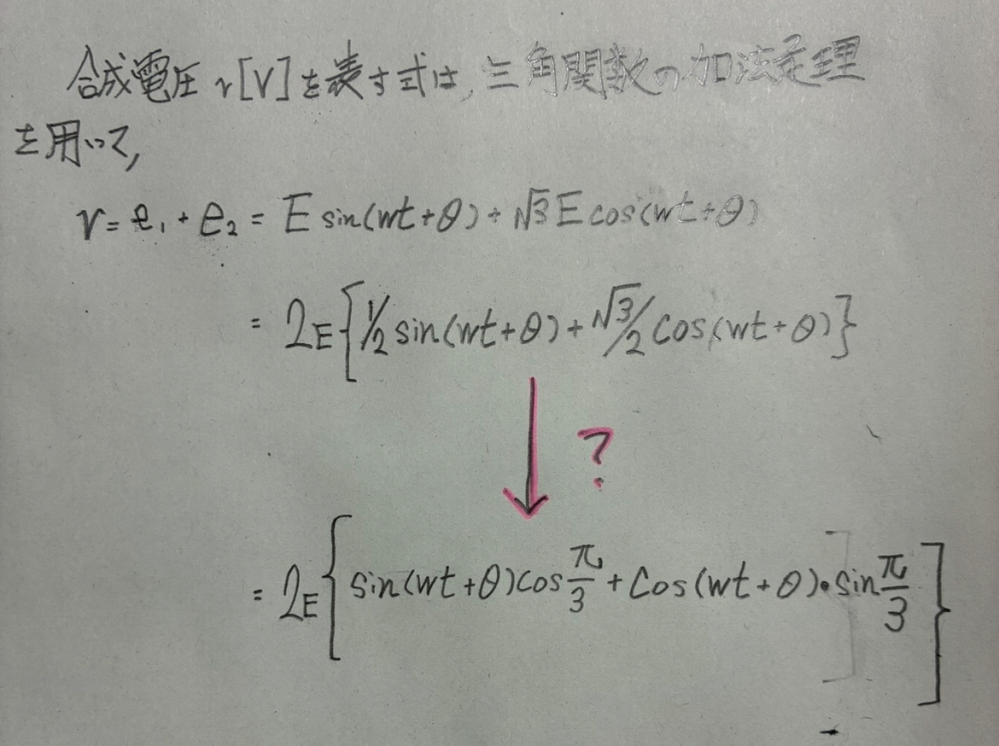 合成電圧 v[V]を表す式は,三角関数の加法定理
を用いて,
v = e₁ + e₂ = E sin(wt+θ) + √3 E cos(wt+θ)
= 2E{1/2 sin(wt+θ) + √3/2 cos(wt+θ)}
?
= 2E{sin(wt+θ)cos π/3 + cos(wt+θ)・sin π/3}